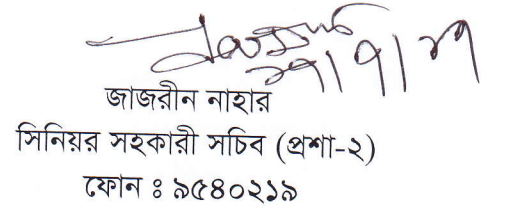 জাজরীন নাহার
সিনিয়র সহকারী সচিব (প্রশা-২)
ফোন ঃ ৯৫৪০২১৯